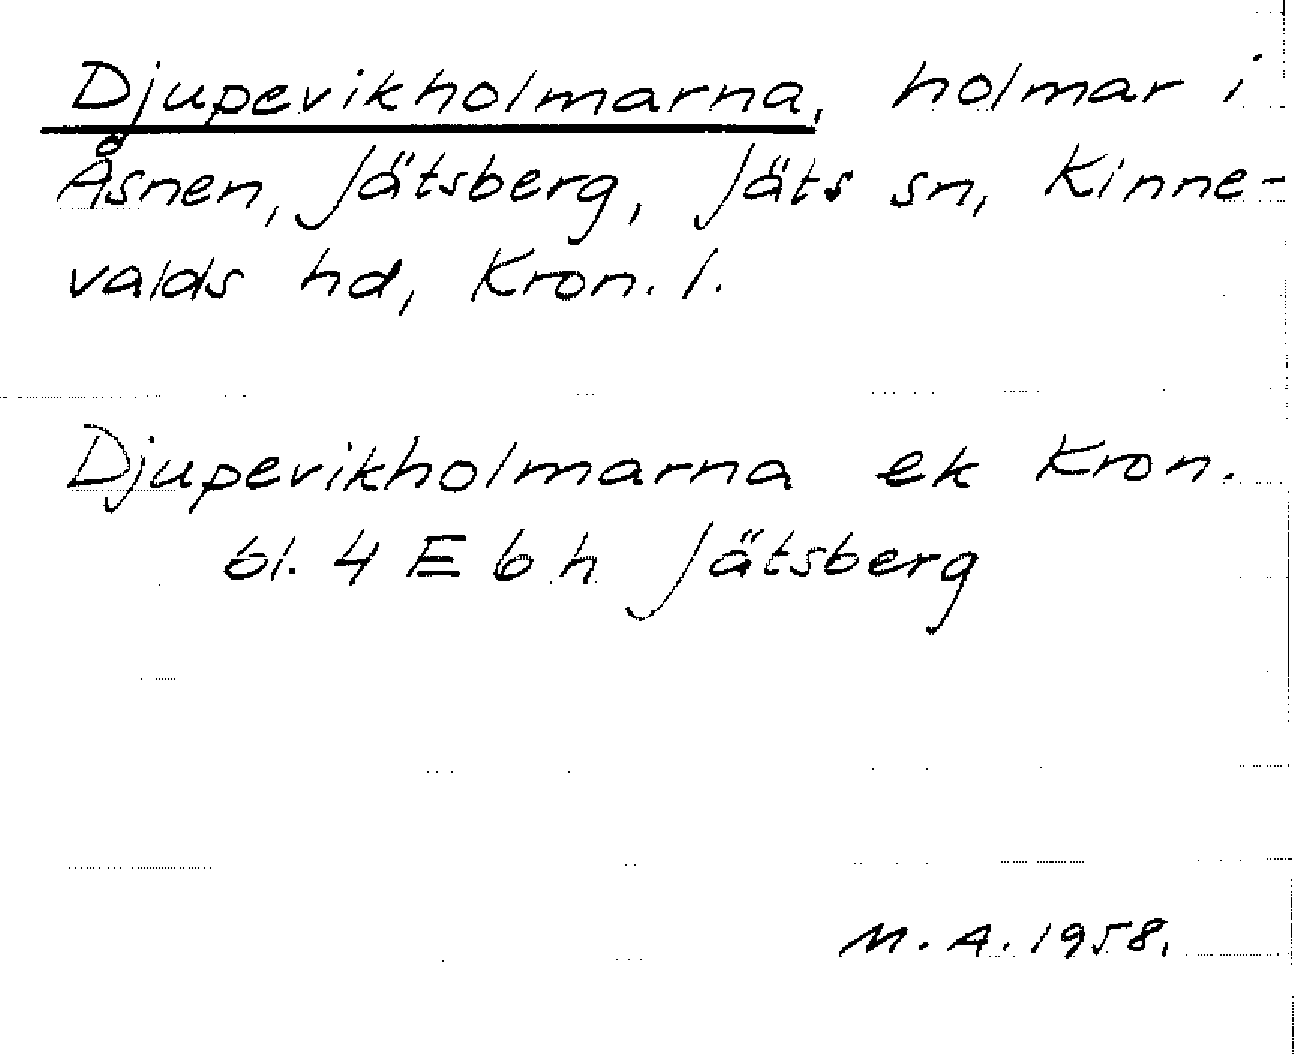 Djupevikholmarna, holmar i
Åsnen, Jätsberg, Jäts sn, Kinne-
valds hd, Kron. l.
Djupevikholmarna ek Kron.
bl. 4 E b h Jätsberg
M. A. 1958.